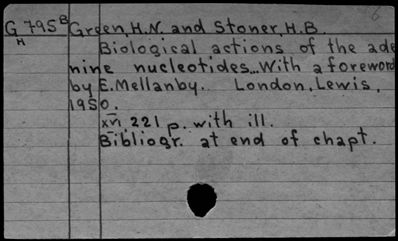 G 795 B Green, H.N. and Stoner, H.B.
H
Biological actions of the ade
nine nucleotides... With a foreword
by E. Mellanby. London, Lewis,
1950.
xvi, 221 p. with ill.
Bibliogr. at end of chapt.